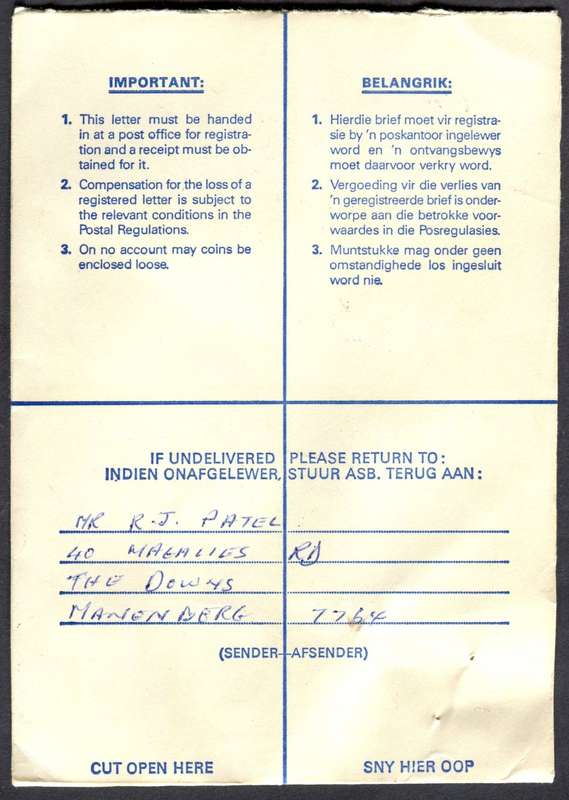 IMPORTANT:
1. This letter must be handed
in at a post office for registra-
tion and a receipt must be ob-
tained for it.
2. Compensation for the loss of a
registered letter is subject to
the relevant conditions in the
Postal Regulations.
3. On no account may coins be
enclosed loose.
BELANGRIK:
1. Hierdie brief moet vir registra-
sie by 'n poskantoor ingelewer
word en 'n ontvangsbewys
moet daarvoor verkry word.
2. Vergoeding vir die verlies van
'n geregistreerde brief is onder-
worpe aan die betrokke voor-
waardes in die Posregulasies.
3. Muntstukke mag onder geen
omstandighede los ingesluit
word nie.
IF UNDELIVERED PLEASE RETURN TO:
INDIEN ONAFGELEWER, STUUR ASB. TERUG AAN:
MR R.J. PATEL
40 MAGALIES RD
THE DOWNS
MANENBERG 7764
(SENDER-AFSENDER)
CUT OPEN HERE SNY HIER OOP